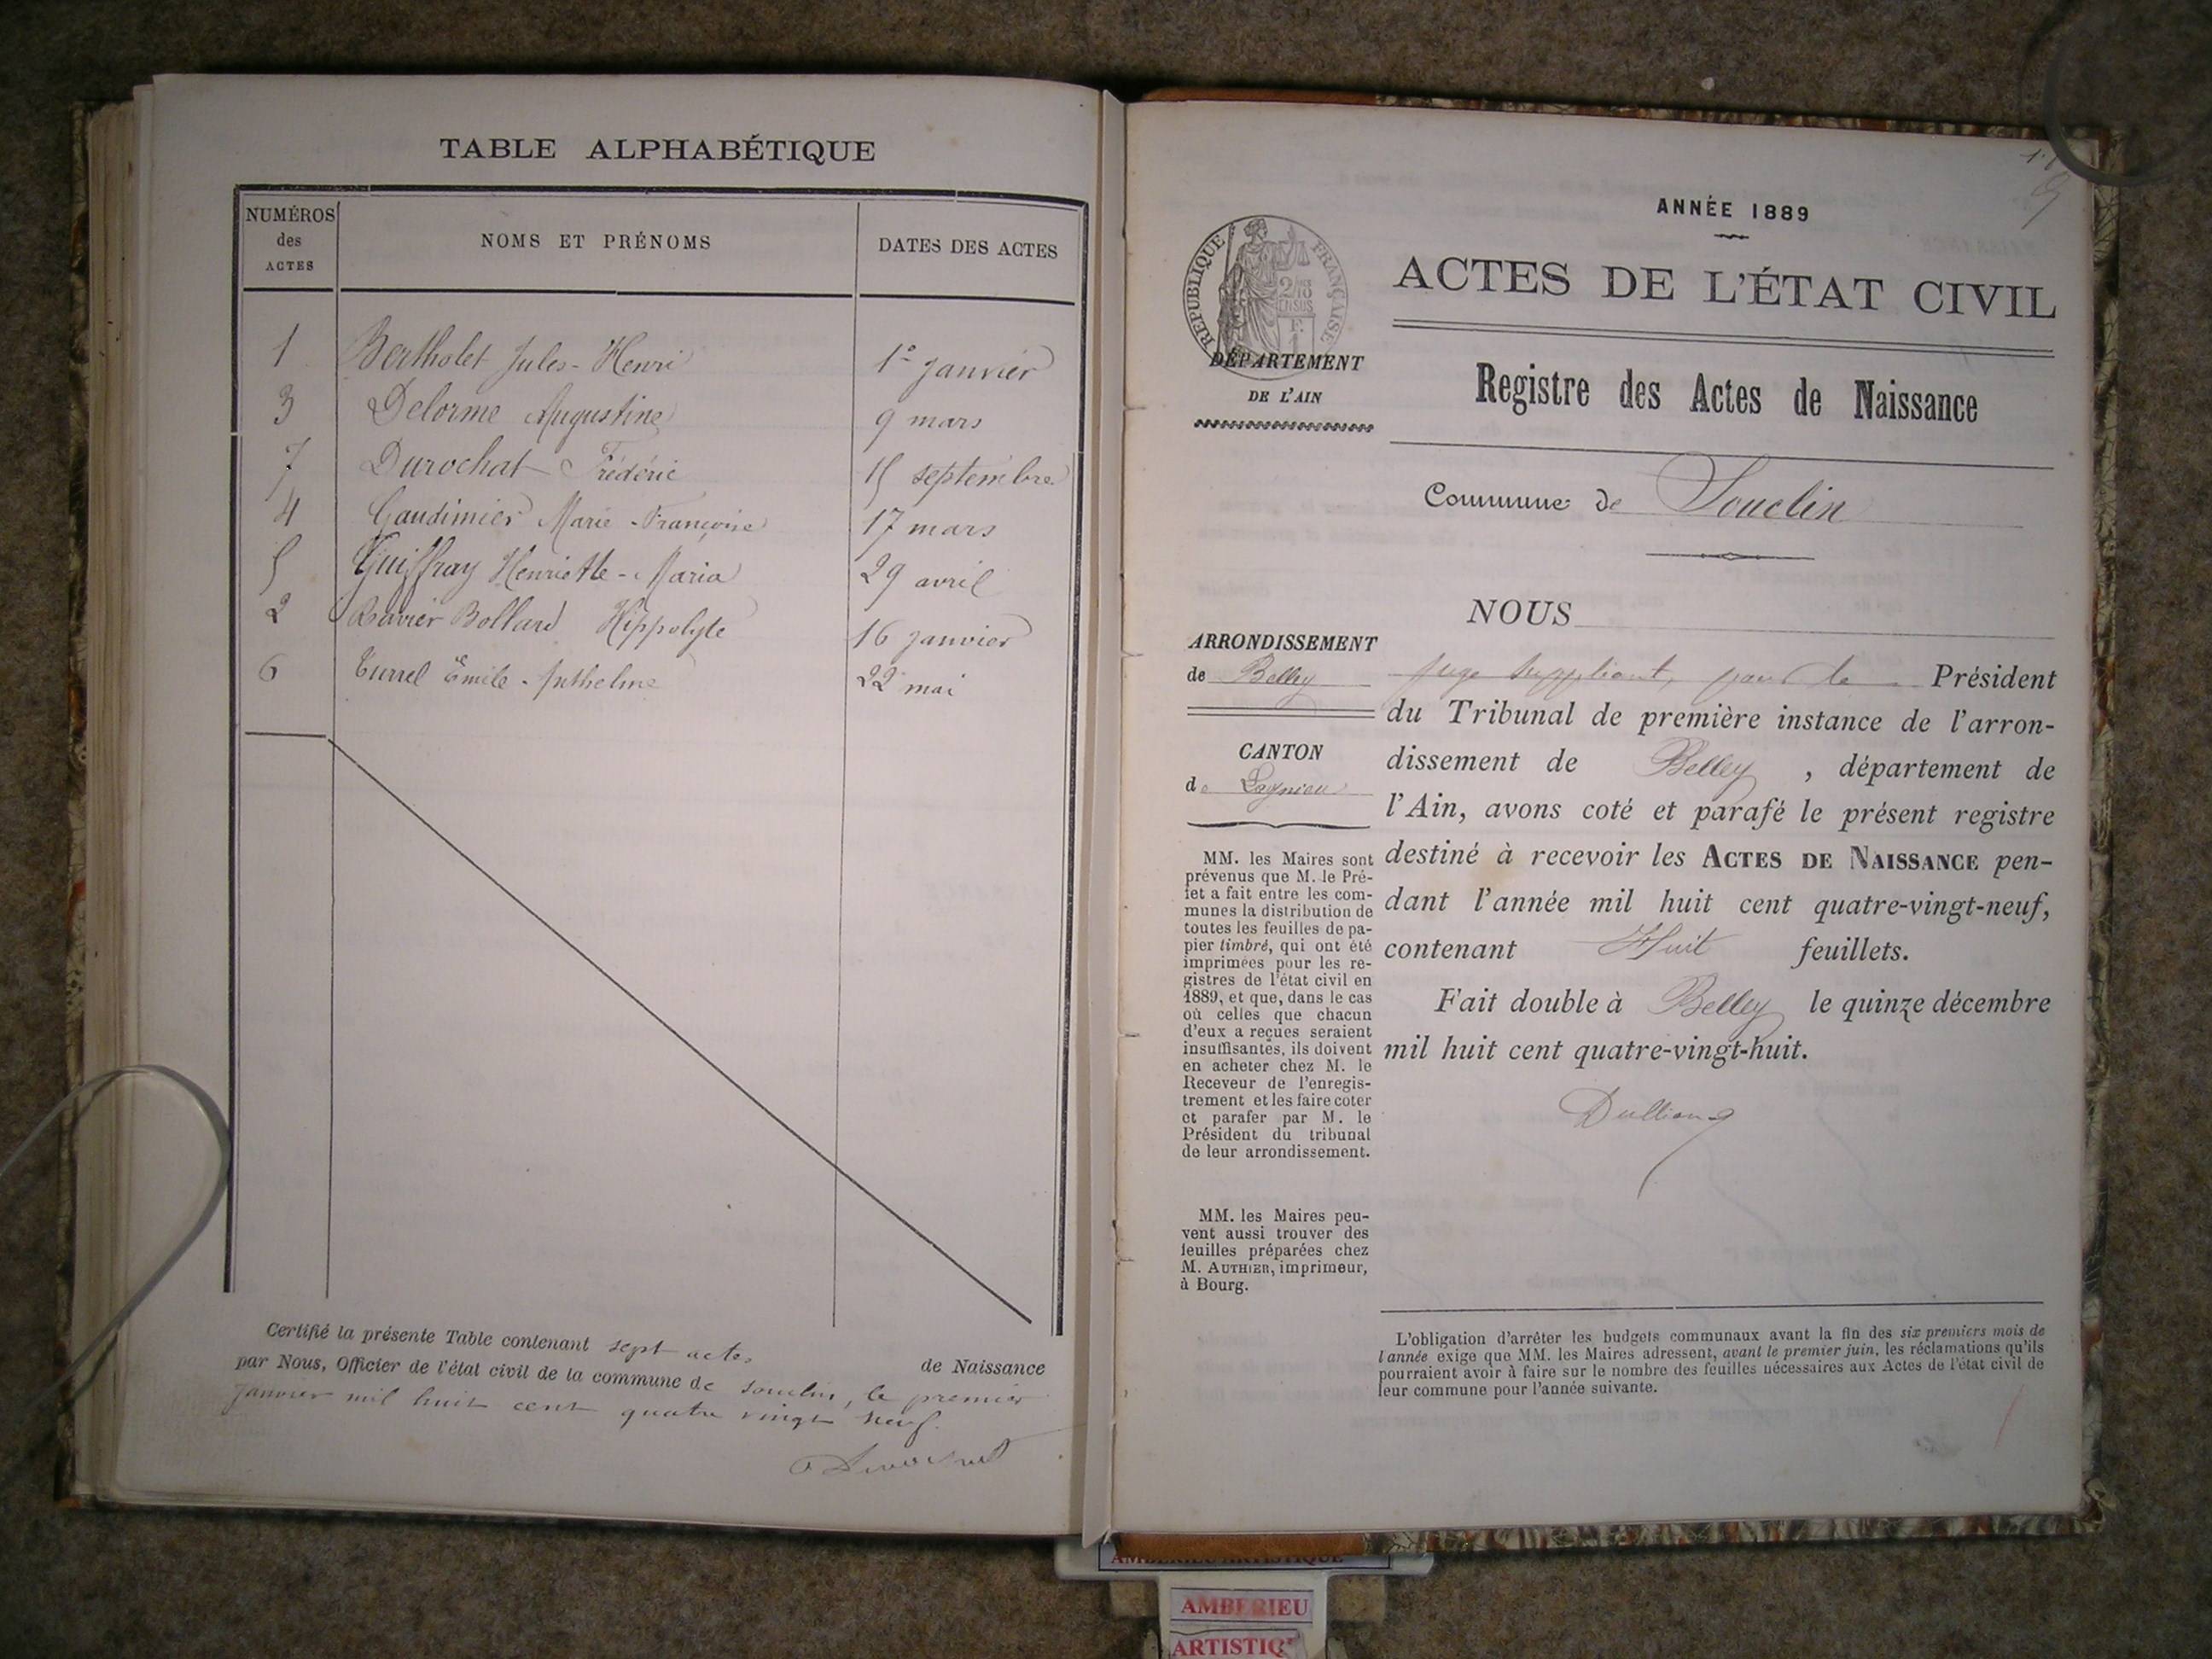 TABLE ALPHABÉTIQUE
NUMÉROS
des
ACTES
NOMS ET PRÉNOMS
DATES DES ACTES
1 Bertholet Jules-Henri 1º janvier
3 Delorme Augustine 9 mars
7 Durochat Frédéric 15 septembre
4 Gaudimier Marie-Françoise 17 mars
5 Guiffray Henriette-Maria 29 avril
2 Ravier Bollard Hippolyte 16 janvier
6 Turrel Émile-Anthelme 22 mai
Certifié la présente Table contenant sept actes de Naissance
par Nous, Officier de l'état civil de la commune de Souclin, le premier
janvier mil huit cent quatre vingt neuf.
ANNÉE 1889
RÉPUBLIQUE FRANÇAISE
ACTES DE L'ÉTAT CIVIL
DÉPARTEMENT
DE L'AIN
Registre des Actes de Naissance
Commune de Souclin
ARRONDISSEMENT
de Belley
CANTON
de Lagnieu
MM. les Maires sont
prévenus que M. le Pré-
fet a fait entre les com-
munes la distribution de
toutes les feuilles de pa-
pier timbré, qui ont été
imprimées pour les re-
gistres de l'état civil en
1889, et que, dans le cas
où celles que chacun
d'eux a reçues seraient
insuffisantes, ils doivent
en acheter chez M. le
Receveur de l'enregis-
trement et les faire coter
et parafer par M. le
Président du tribunal
de leur arrondissement.
MM. les Maires peu-
vent aussi trouver des
feuilles préparées chez
M. AUTHIER, imprimeur,
à Bourg.
NOUS
juge suppléant, pour le Président
du Tribunal de première instance de l'arron-
dissement de Belley, département de
l'Ain, avons coté et parafé le présent registre
destiné à recevoir les ACTES DE NAISSANCE pen-
dant l'année mil huit cent quatre-vingt-neuf,
contenant Huit feuillets.
Fait double à Belley le quinze décembre
mil huit cent quatre-vingt-huit.
L'obligation d'arrêter les budgets communaux avant la fin des six premiers mois de
l'année exige que MM. les Maires adressent, avant le premier juin, les réclamations qu'ils
pourraient avoir à faire sur le nombre des feuilles nécessaires aux Actes de l'état civil de
leur commune pour l'année suivante.
AMBERIEU ARTISTIQUE
AMBERIEU
ARTISTIQ